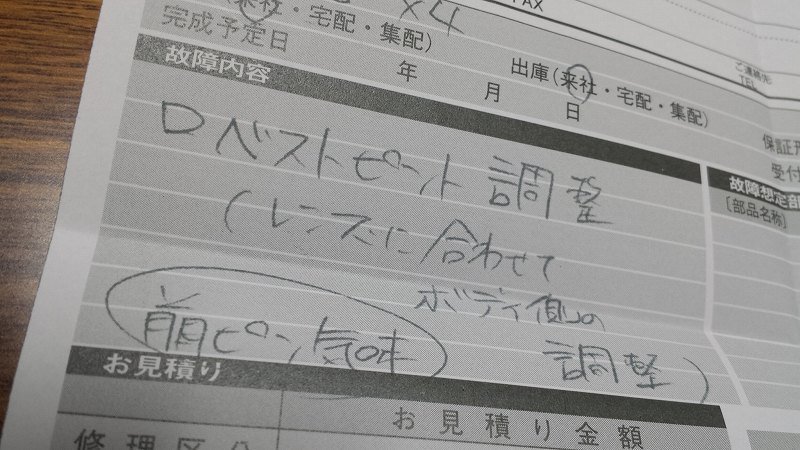 FAX
×4
来社・宅配・集配)
完成予定日
年 月 日
出庫(来社・宅配・集配)
ご連絡先
TEL
保証
受付
故障内容
故障想定部
〔部品名称〕
①ベストピント調整
(レンズに合わせて
ボディ側の
調整)
前ピン気味
お見積り
お見積り金額
修理区分